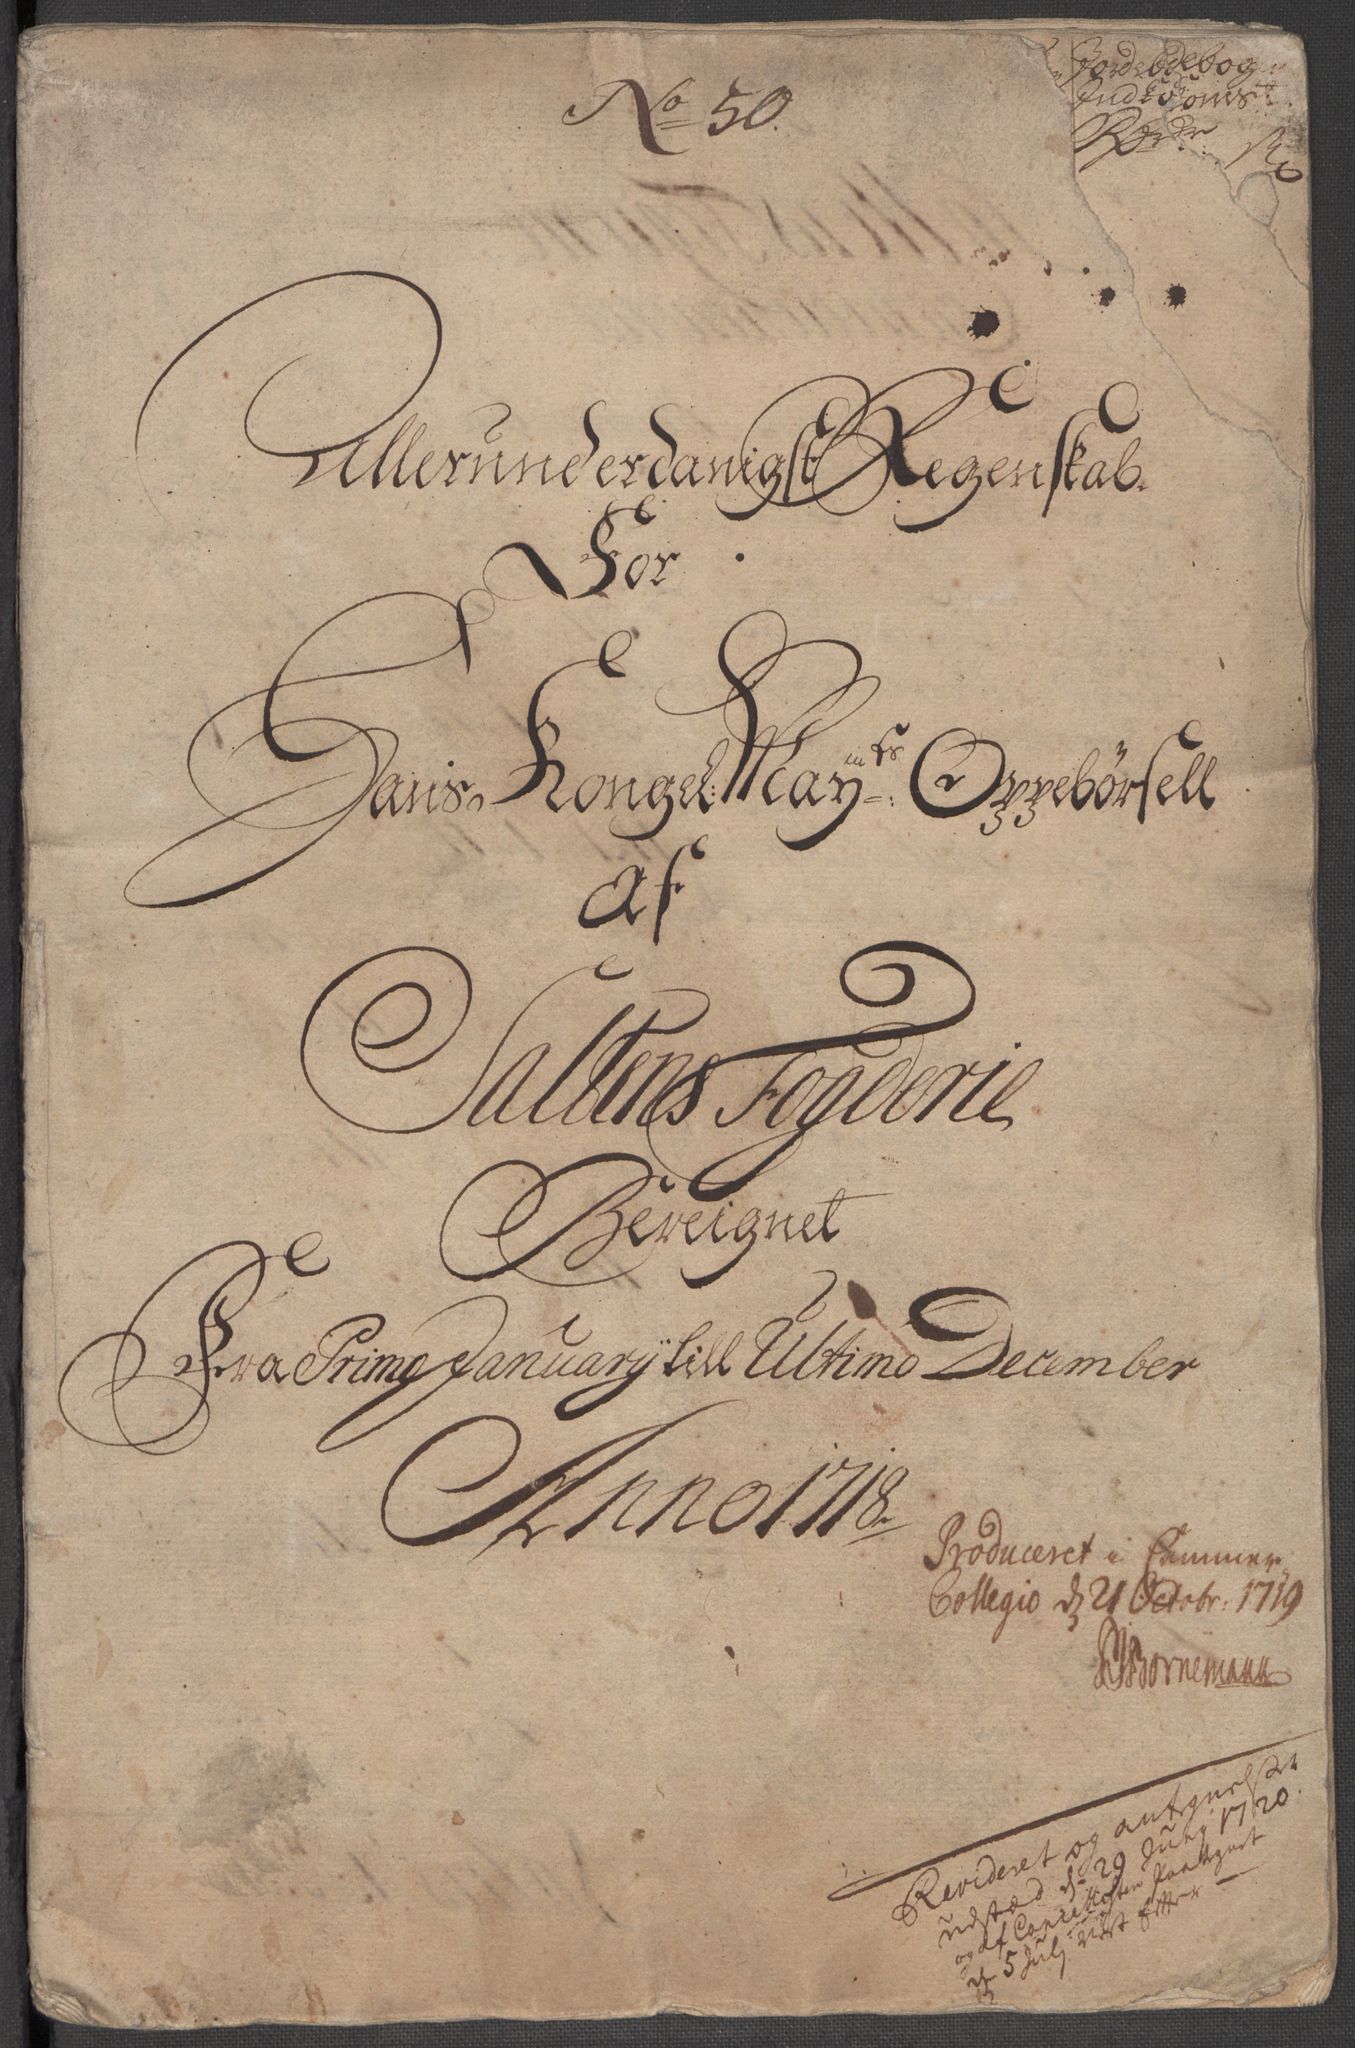 No 50.
Jordebog
Indkomst
Allerunderdanigst Regenskab.
For
Hans Kongel: Mayts: Oppebørsell
af
Saltens Fogderie
Bereignet
Fra Primo January till Ultimo December
Anno 1718
Produceret i Cammer
Collegio d 21 Octobr: 1719
Bornemann
Revideret og antegnelser
udstæd d. 29 Juny 1720.
og af
d 5 July